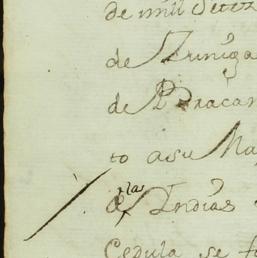 de mill Setez
de Zuniga
de Bracam
to a su Ma
de las Indias
Cedula se f